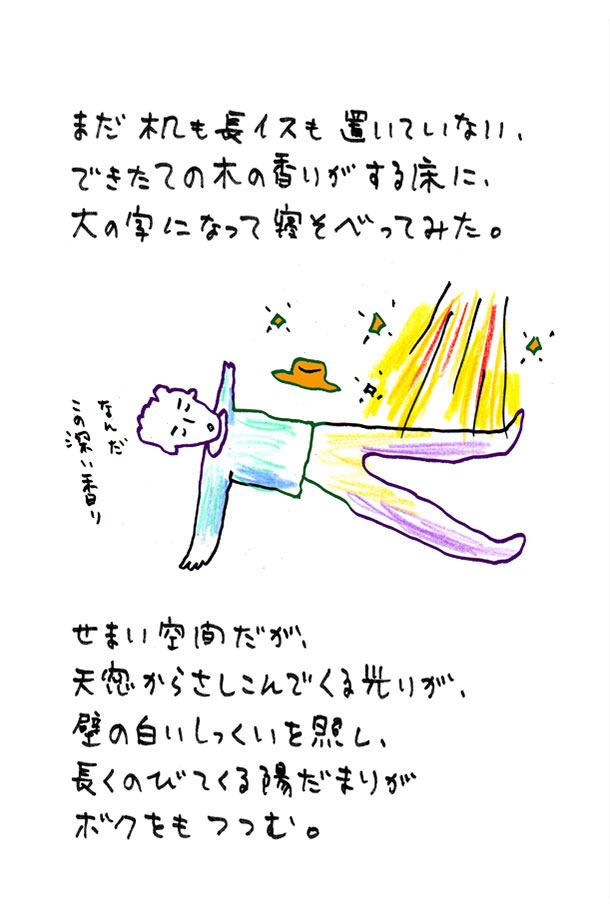 まだ机も長イスも置いていない、
できたての木の香りがする床に、
大の字になって寝そべってみた。
なんだ
この深い香り
せまい空間だが、
天窓からさしこんでくる光りが、
壁の白いしっくいを照し、
長くのびてくる陽だまりが
ボクをもつつむ。